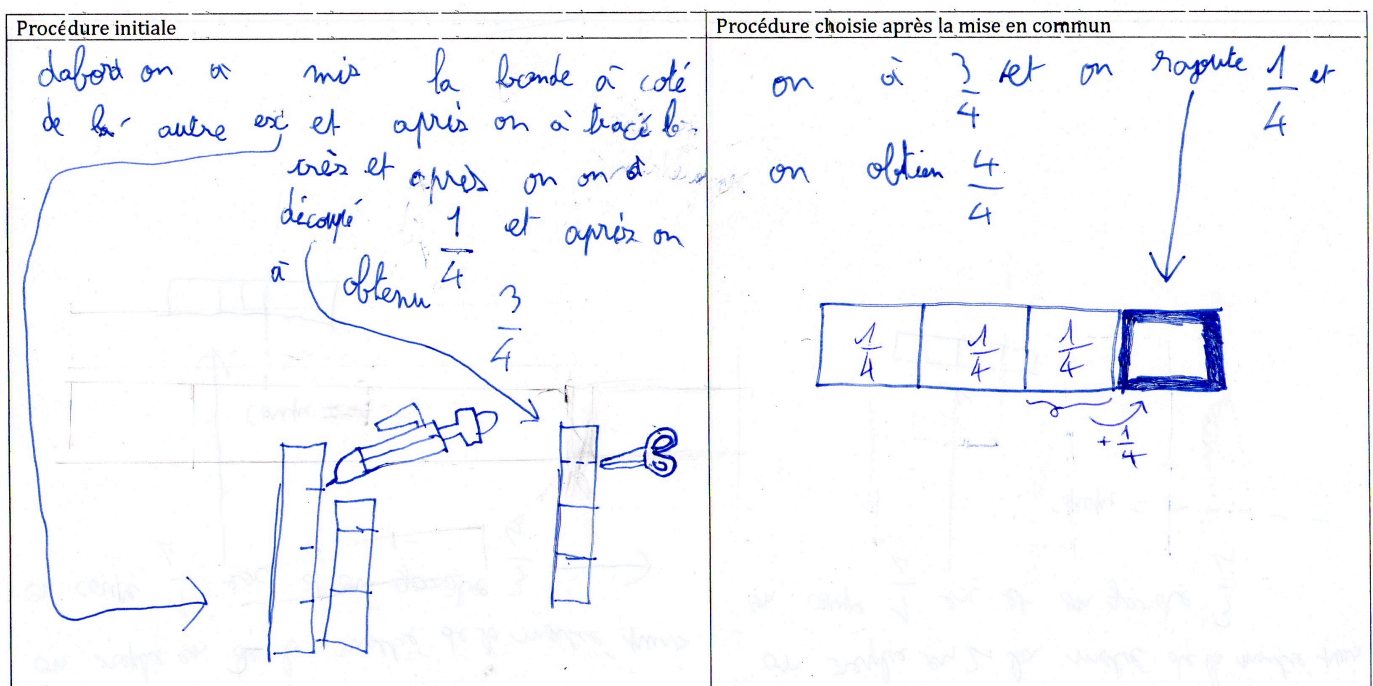 Procédure initiale
dabord on à mis la bande à coté
de la autre ex et après on à tracé le
très et après on on à
découpé 1/4 et après on
à obtenu 3/4
Procédure choisie après la mise en commun
on à 3/4 et on rajoute 1/4 et
on obtien 4/4
1/4 1/4 1/4
+ 1/4